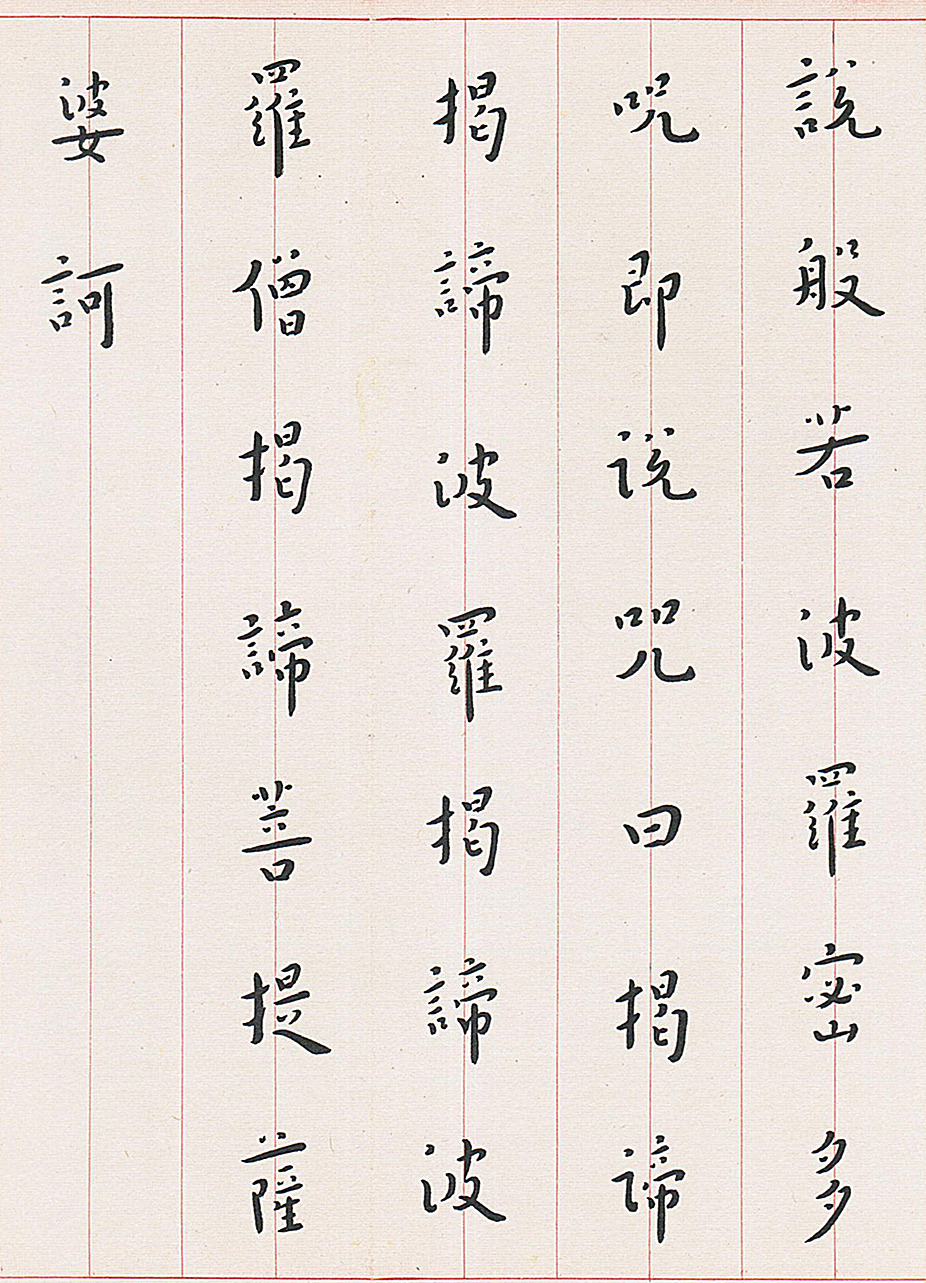 說般若波羅蜜多
咒即说咒曰揭諦
揭諦波羅揭諦波
羅僧揭諦菩提薩
婆訶